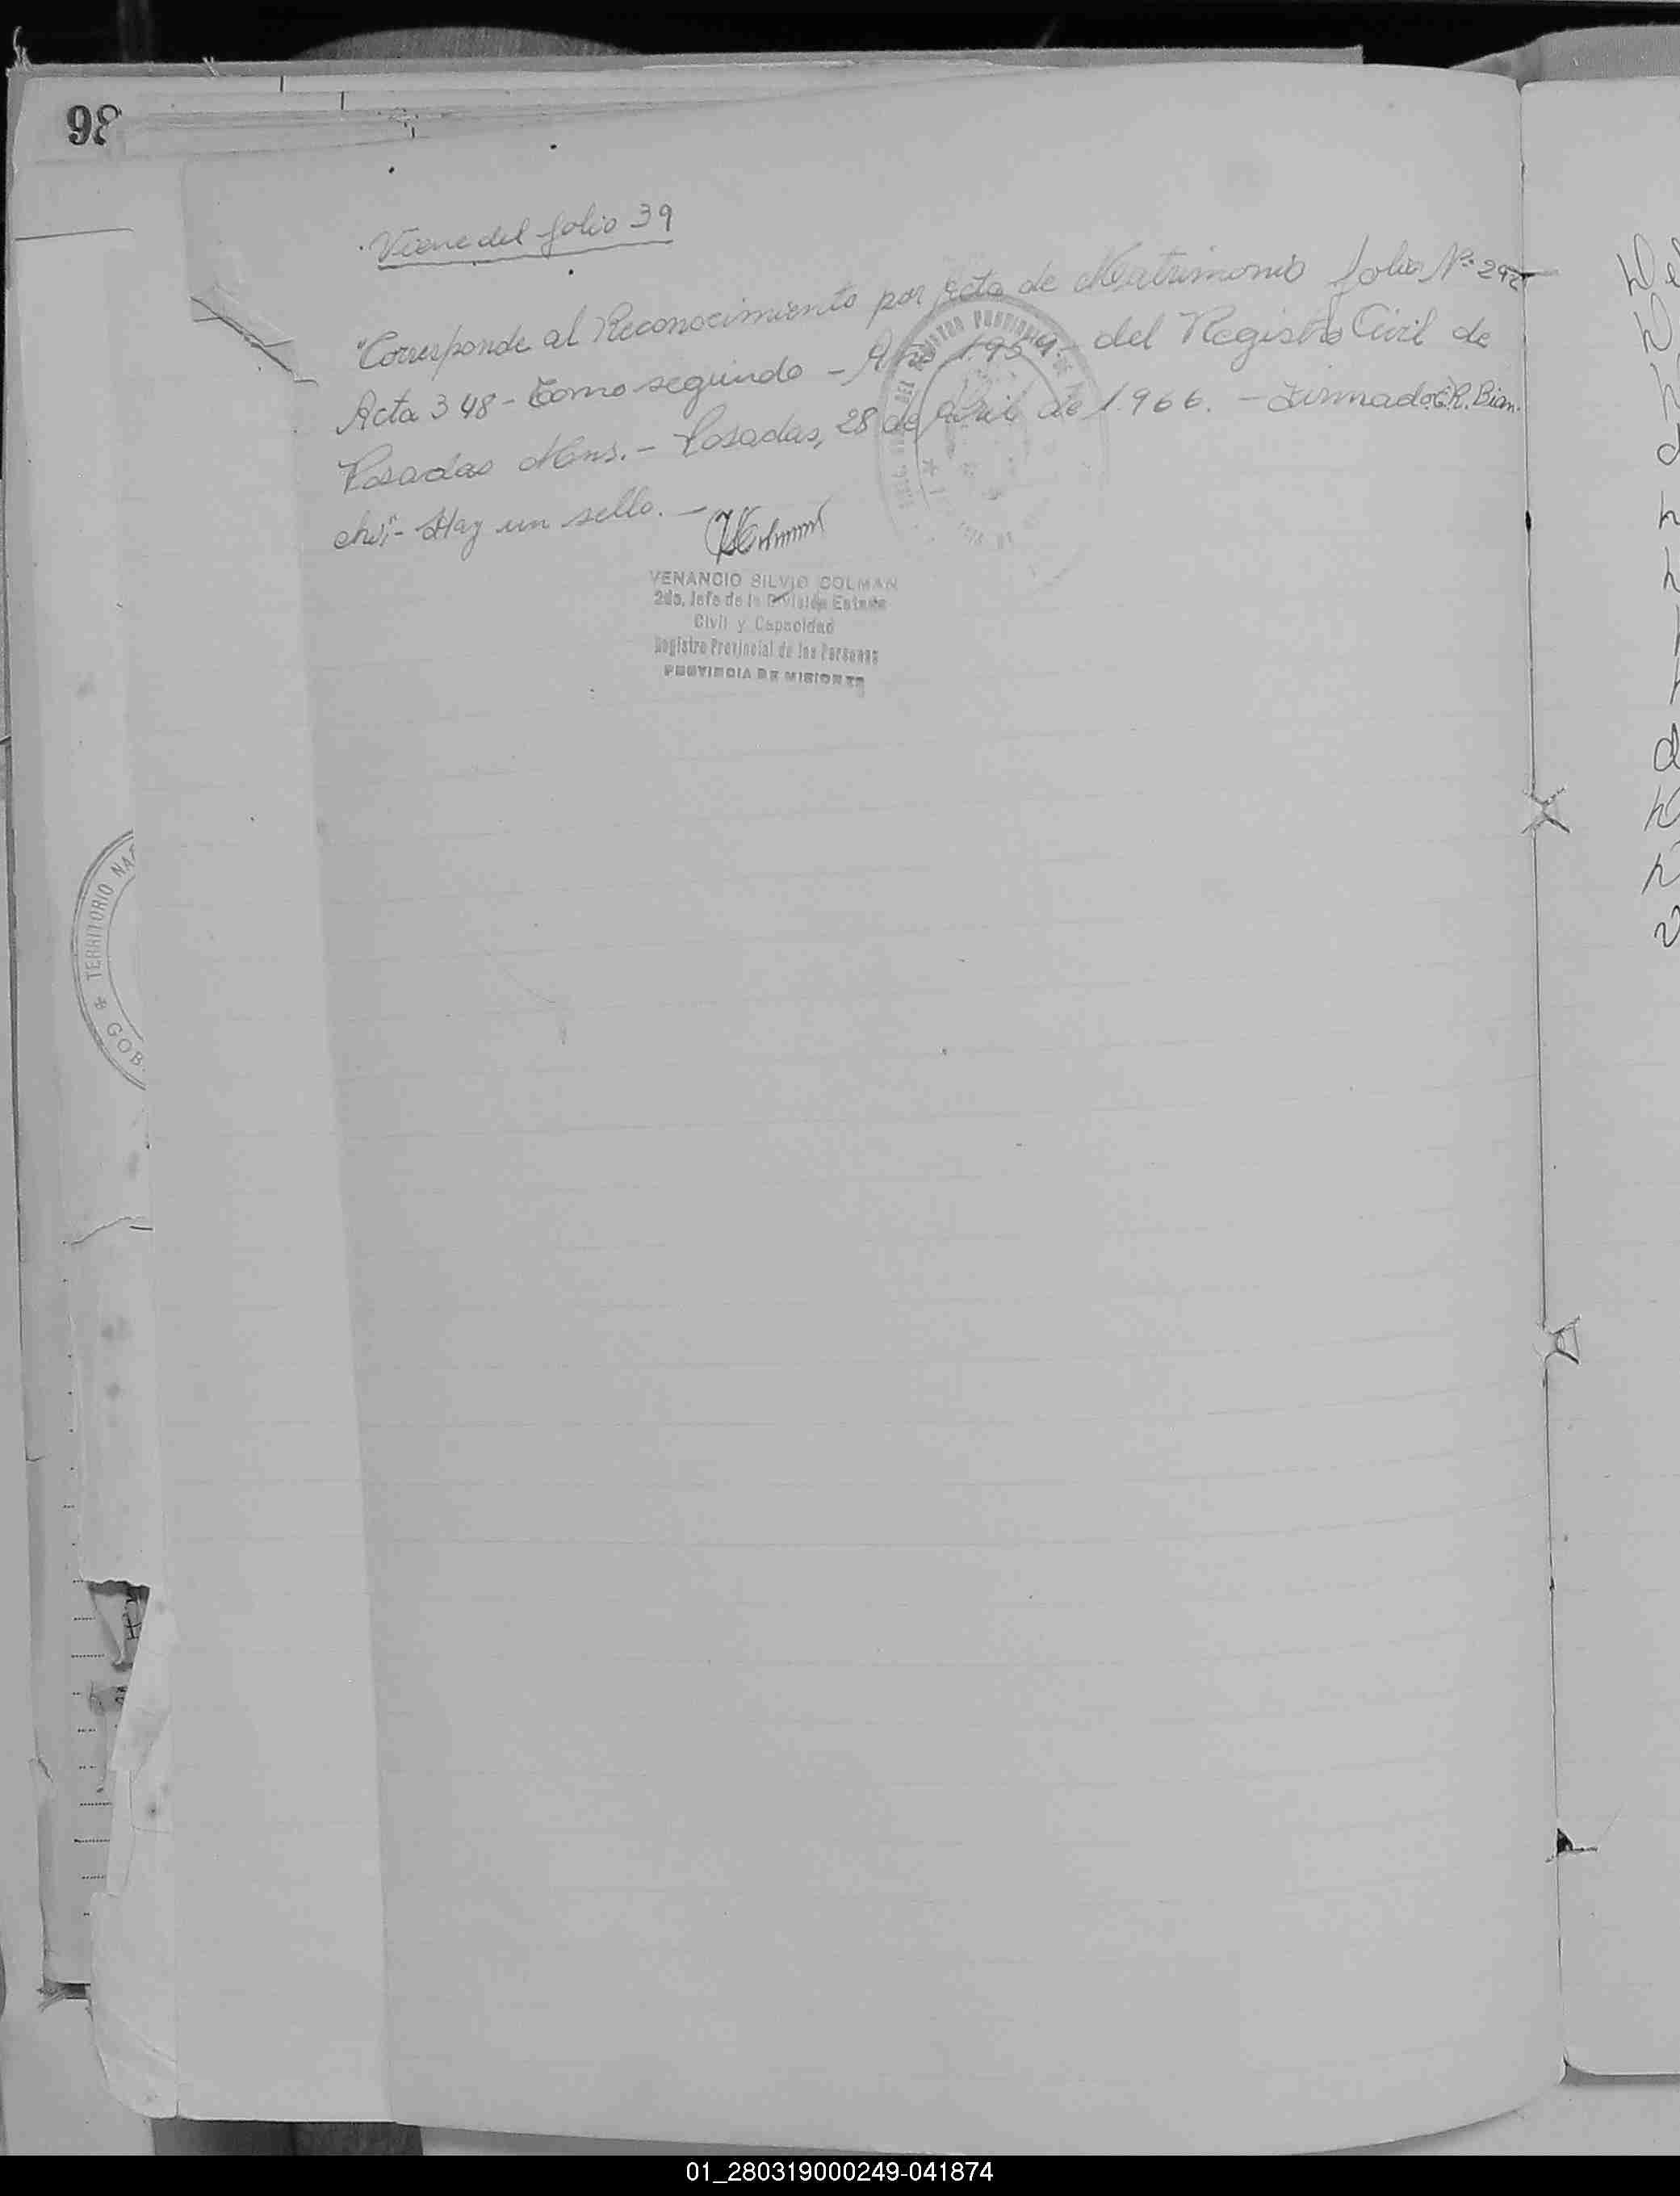 98
Viene del folio 39
"Corresponde al Reconocimiento por Acta de Matrimonio folio Nº 292
Acta 348 - Tomo segundo - Año 1959 - del Registro Civil de
Posadas Mns. - Posadas, 28 de Abril de 1.966. - Firmado: E.R. Bian-
chi". - Hay un sello. -
VENANCIO SILVIO COLMAN
2do. Jefe de la División Estado
Civil y Capacidad
Registro Provincial de las Personas
PROVINCIA DE MISIONES
TERRITORIO NA
GOB
01_280319000249-041874